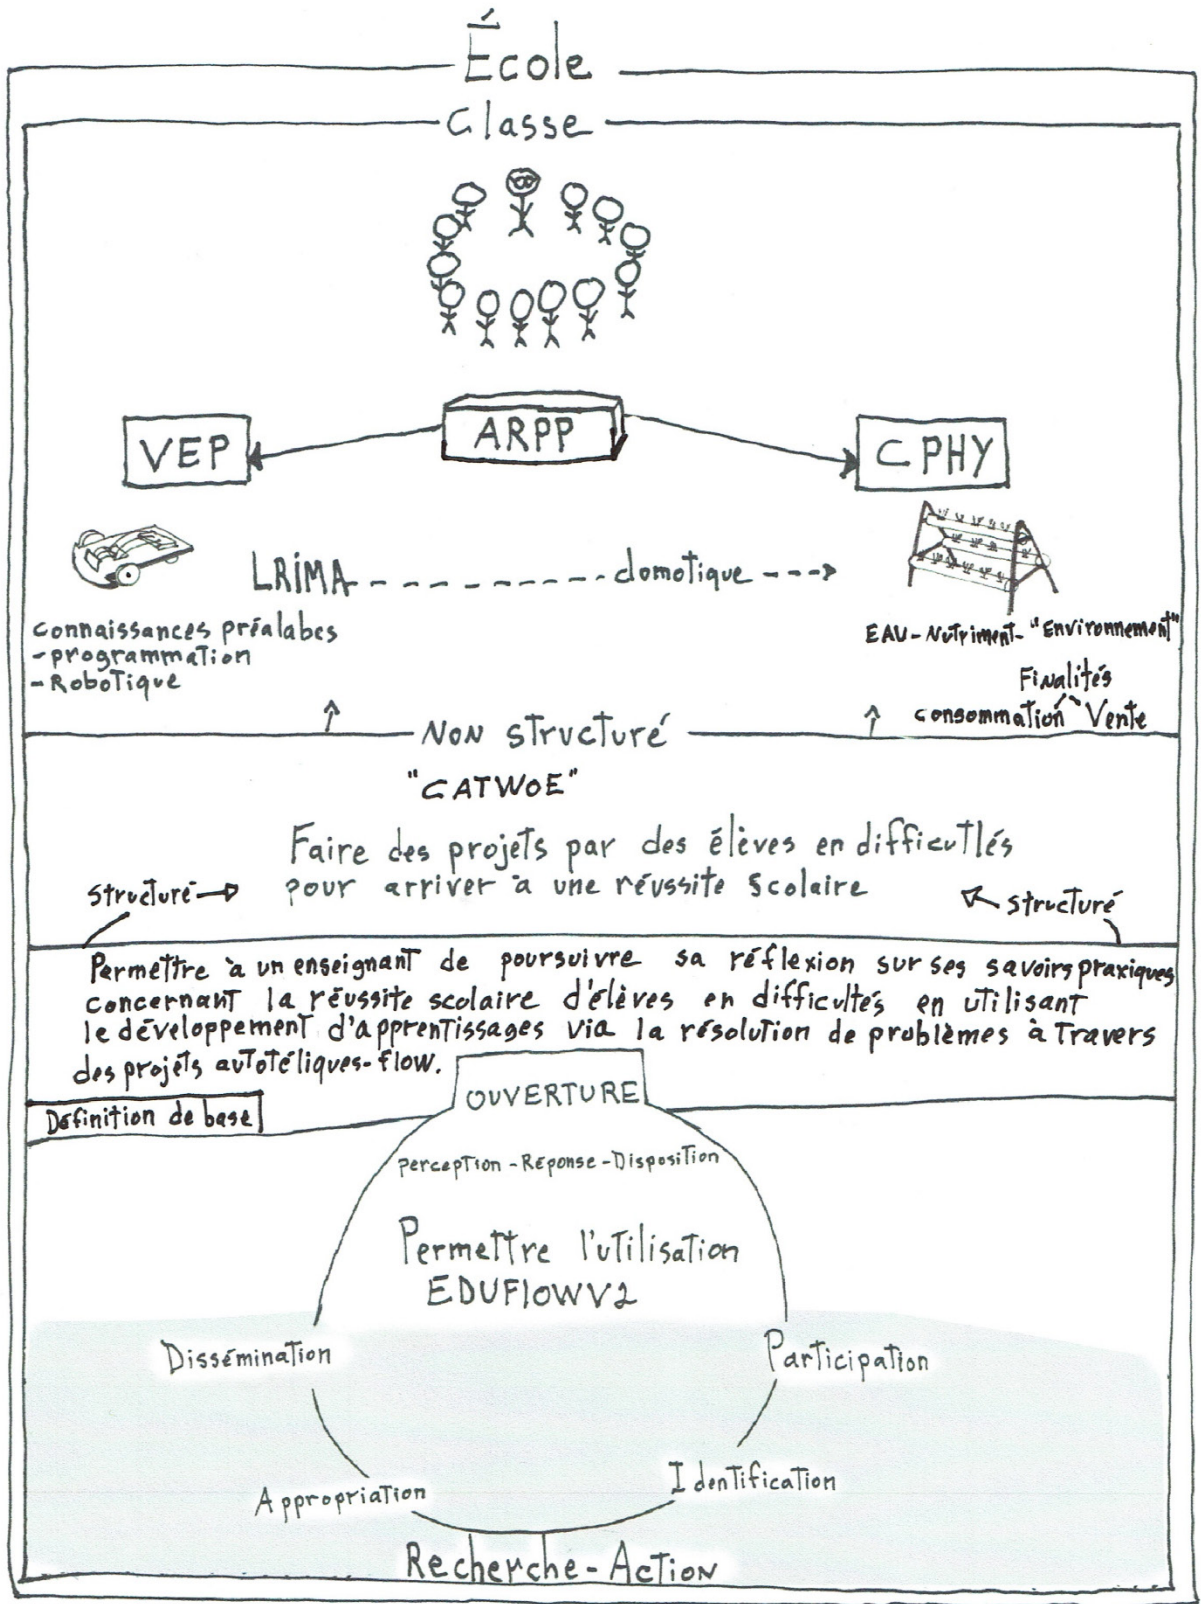 École
Classe
VEP
ARPP
CPHY
LRIMA - - - - - - - - - - - domotique - - ->
connaissances préalabes
- programmation
- Robotique
EAU - Nutriment - "Environnement"
Finalités
consommation Vente
Non structuré
"CATWOE"
Faire des projets par des élèves en difficultlés
pour arriver à une réussite scolaire
structuré
structuré
Permettre à un enseignant de poursuivre sa réflexion sur ses savoirs praxiques
concernant la réussite scolaire d'élèves en difficultés en utilisant
le développement d'apprentissages via la résolution de problèmes à travers
des projets autotéliques-flow.
OUVERTURE
Définition de base
Perception - Réponse - Disposition
Permettre l'utilisation
EDUFlOWV2
Dissémination
Participation
Appropriation
Identification
Recherche-Action